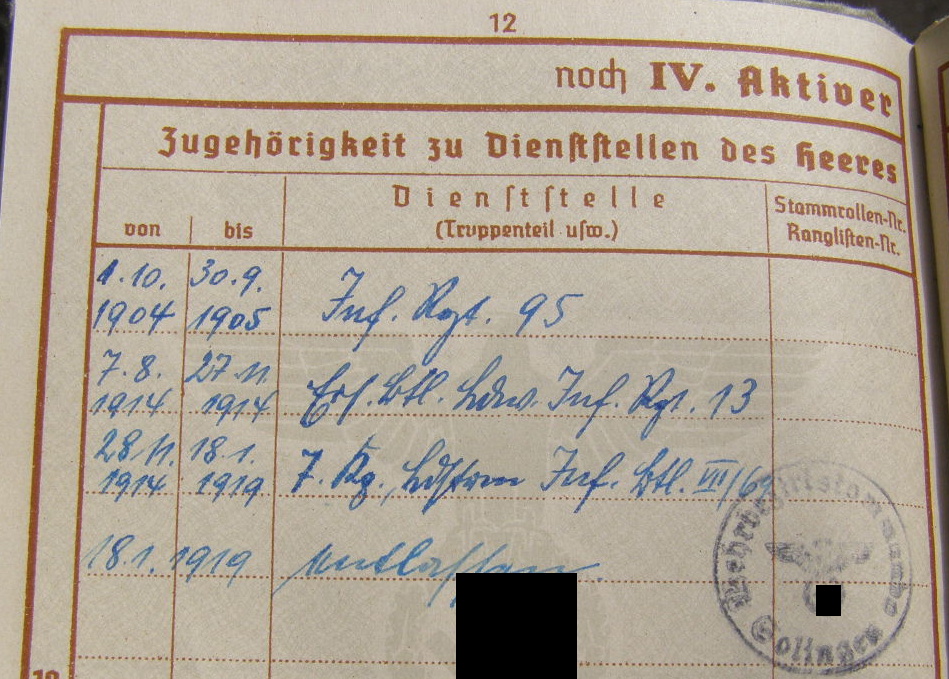 12
noch IV. Aktiver
Zugehörigkeit zu Dienststellen des Heeres
von bis Dienststelle (Truppenteil usw.) Stammrollen-Nr. Ranglisten-Nr.
1.10. 1904 30.9. 1905 Inf. Rgt. 95
7.8. 1914 27.11. 1914 Ers. Btl. Ldw. Inf. Rgt. 13
28.11. 1914 18.1. 1919 7. Kp. Ldstrm Inf. Btl. VII/69
18.1. 1919 entlassen.
Wehrbezirkskommando
Solingen